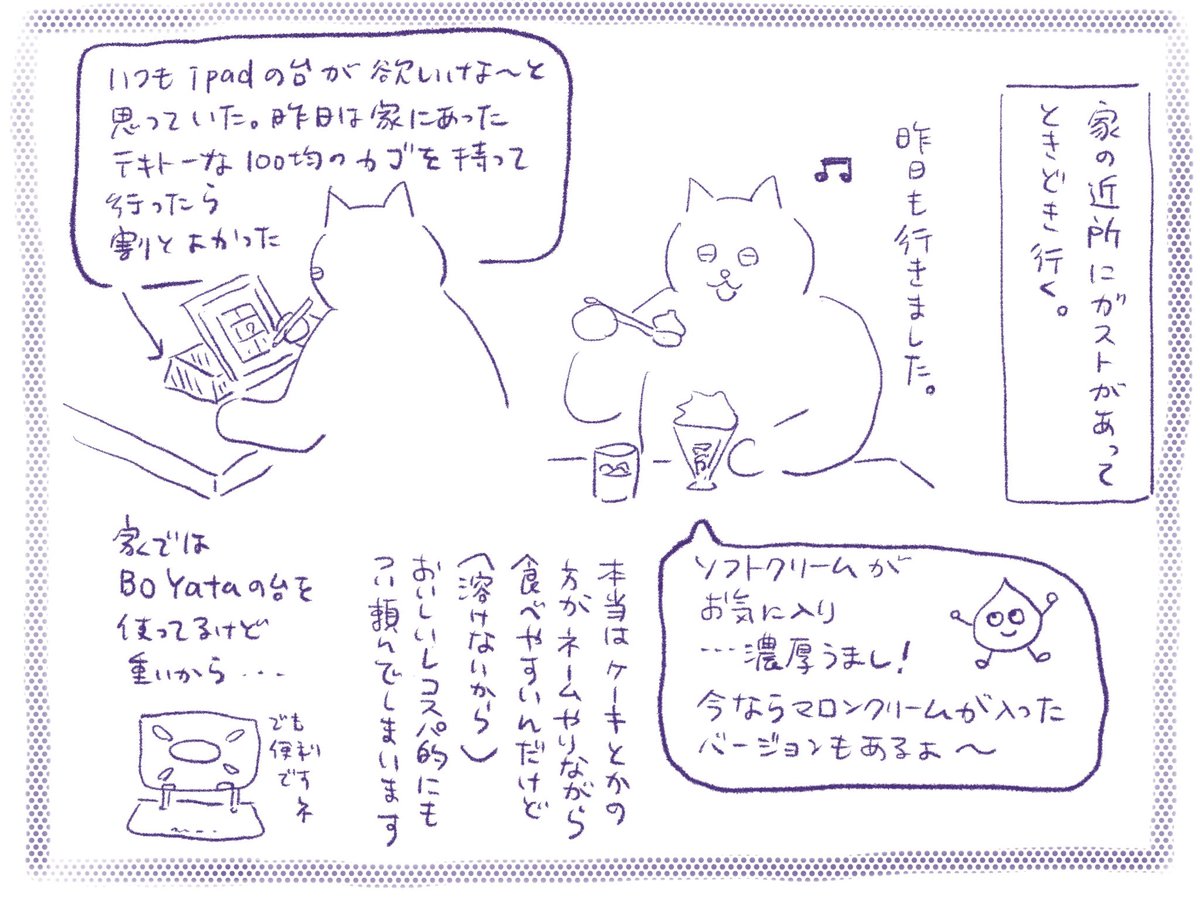 家の近所にガストがあって
ときどき行く。
昨日も行きました。
いつもipadの台が欲しいけな〜と
思っていた。昨日は家にあった
テキトーな100均のカゴを持って
行ったら
割とよかった
ソフトクリームが
お気に入り
…濃厚うまし!
今ならマロンクリームが入った
バージョンもあるよ〜
本当はケーキとかの
方がネームやりながら
食べやすいんだけど
(溶けないから)
おいしいしコスパ的にも
つい頼んでしまいます
家では
BoYataの台を
使ってるけど
重いから…
でも
便利
です
ネ